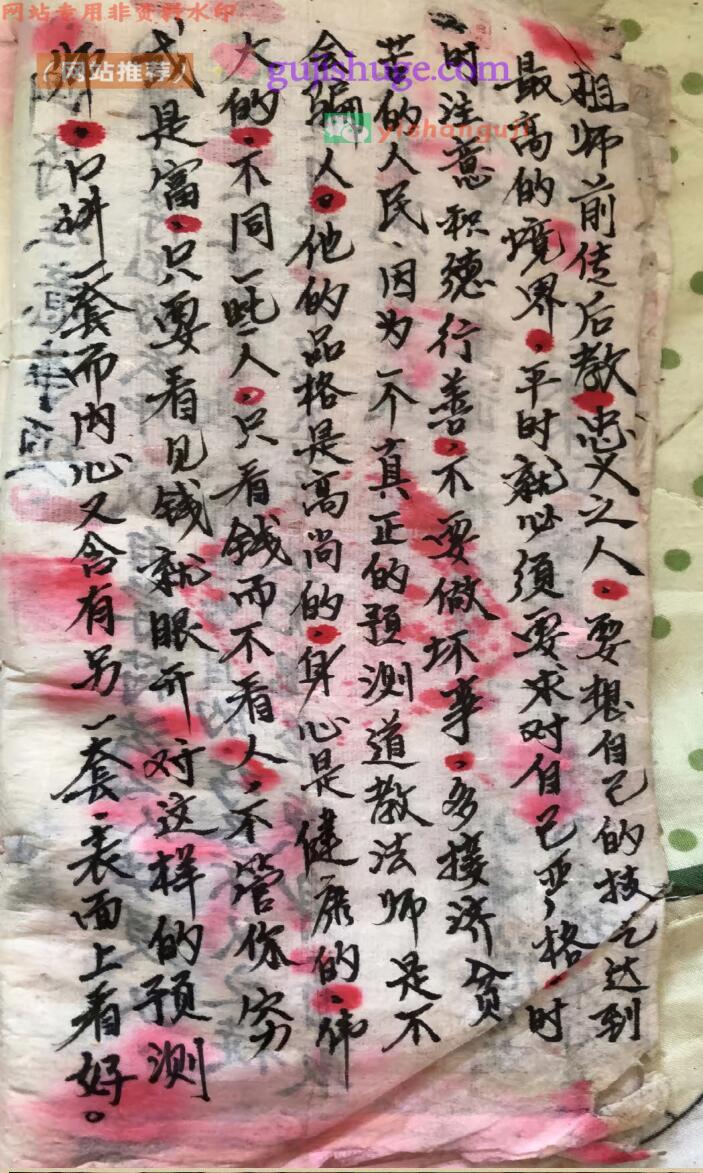 网站专用非资料水印
网站推荐人
gujishuge.com
yishenguji
祖师前传后教忠义之人。要想自己的技艺达到
最高的境界。平时就必须要求对自己严格。时
时注意积德行善。不要做坏事。多接济贫
苦的人民、因为一个真正的预测道教法师是不
会骗人。他的品格是高尚的。身心是健康的。伟
大的。不同一些人。只看钱而不看人。不管你穷
或是富。只要看见钱就眼开对这样的预测
师。口讲一套而内心又含有另一套、表面上看好。